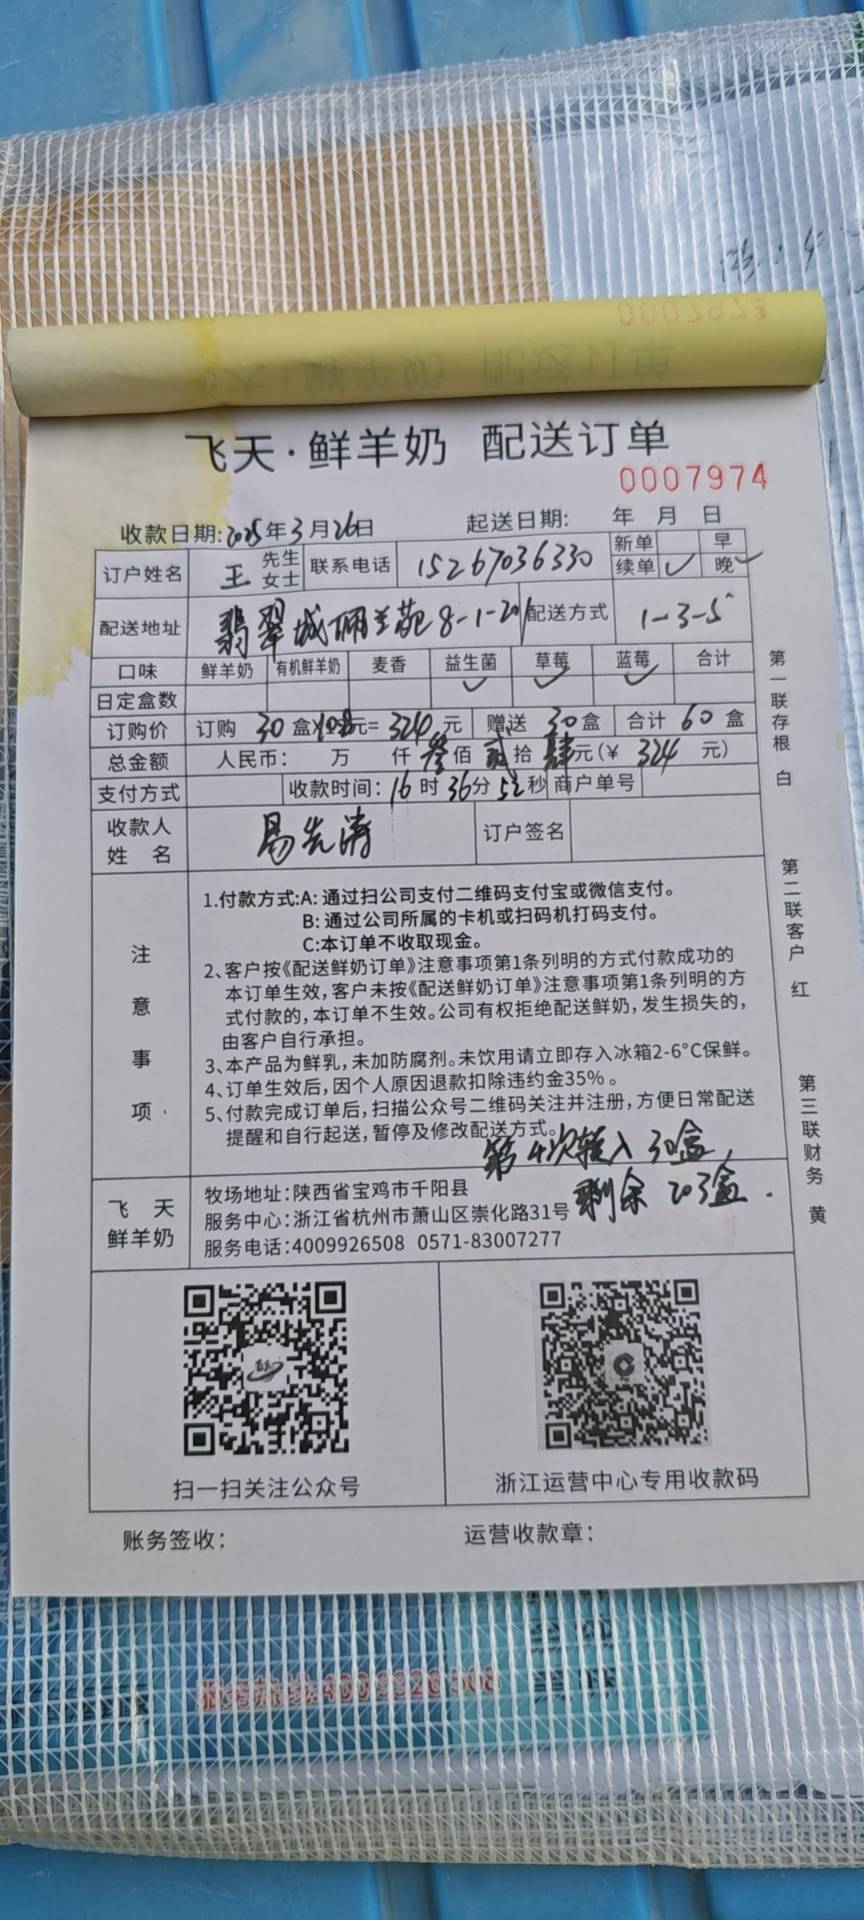 0007973
飞天·鲜羊奶 配送订单
0007974
收款日期:2025年3月26日 起送日期: 年 月 日
订户姓名 王 先生 女士 联系电话 15267036330 新单 早
续单✓ 晚✓
配送地址 翡翠城俪兰苑8-1-201 配送方式 1-3-5
口味 鲜羊奶 有机鲜羊奶 麦香 益生菌 草莓 蓝莓 合计
日定盒数 ✓ ✓ ✓
订购价 订购 30 盒×10.8元= 324 元 赠送 30 盒 合计 60 盒
总金额 人民币: 万 仟 叁佰 贰拾 肆元(¥ 324 元)
支付方式 收款时间: 16时36分52秒 商户单号
收款人姓名 易先涛 订户签名
注意事项
1.付款方式:A: 通过扫公司支付二维码支付宝或微信支付。
B: 通过公司所属的卡机或扫码机打码支付。
C:本订单不收取现金。
2、客户按《配送鲜奶订单》注意事项第1条列明的方式付款成功的
本订单生效,客户未按《配送鲜奶订单》注意事项第1条列明的方
式付款的,本订单不生效。公司有权拒绝配送鲜奶,发生损失的,
由客户自行承担。
3、本产品为鲜乳,未加防腐剂。未饮用请立即存入冰箱2-6°C保鲜。
4、订单生效后,因个人原因退款扣除违约金35%。
5、付款完成订单后,扫描公众号二维码关注并注册,方便日常配送
提醒和自行起送,暂停及修改配送方式。
第4次转入30盒,
剩余203盒.
飞天鲜羊奶
牧场地址:陕西省宝鸡市千阳县
服务中心:浙江省杭州市萧山区崇化路31号
服务电话:4009926508 0571-83007277
扫一扫关注公众号 浙江运营中心专用收款码
账务签收: 运营收款章:
第一联存根 白
第二联客户 红
第三联财务 黄